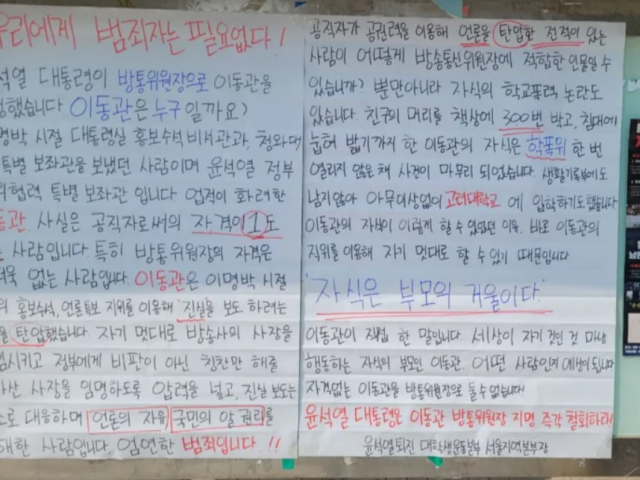 우리에게 범죄자는 필요없다!
석열 대통령이 방통위원장으로 이동관을
명했습니다 이동관은 누구 일까요?
명박 시절 대통령실 홍보수석비서관과, 청와대
특별 보좌관을 보냈던 사람이며 윤석열 정부
외협력 특별 보좌관 입니다 업적이 화려한
동관. 사실은 공직자로써의 자격이 1도
는 사람입니다 특히 방통위원장의 자격은
더욱 없는 사람입니다. 이동관은 이명박 시절
의 홍보수석, 언론특보 지위를 이용해 '진실'을 보도 하려는
을 탄압했습니다. 자기 멋대로 방송사의 사장을
임시키고 정부에게 비판이 아닌 칭찬만 해줄
사장을 임명하도록 압력을 넣고, 진실 보도는
소로 대응하며 언론의 자유 국민의 알 권리를
해한 사람입니다. 엄연한 범죄입니다!!
공직자가 공권력을 이용해 언론을 탄압한 전적이 있는
사람이 어떻게 방송통신위원장에 적합한 인물일 수
있습니까? 뿐만아니라 자식의 학교폭력 논란도
있습니다 친구의 머리를 책상에 300번 박고, 침대에
눕혀 밟기까지 한 이동관의 자식은 학폭위 한 번
열리지 않은 채 사건이 마무리 되었습니다. 생활기록부에도
남지않아 아무이상없이 고려대학교 에 입학하기도했습니다
이동관의 자식이 이렇게 할 수 있었던 이유, 바로 이동관의
직위를 이용해 자기 멋대로 할 수 있기 때문입니다
'자식은 부모의 거울이다'
이동관이 직접 한 말입니다. 세상이 자기 것인 것 마냥
행동하는 자식의 부모인 이동관. 어떤 사람인게 예상이 됩니다
자격없는 이동관을 방통위원장으로 둘 수 없습니다!
윤석열 대통령은 이동관 방통위원장 지명 즉각 철회하라!
윤석열퇴진 대학생운동본부 서울지역본부장